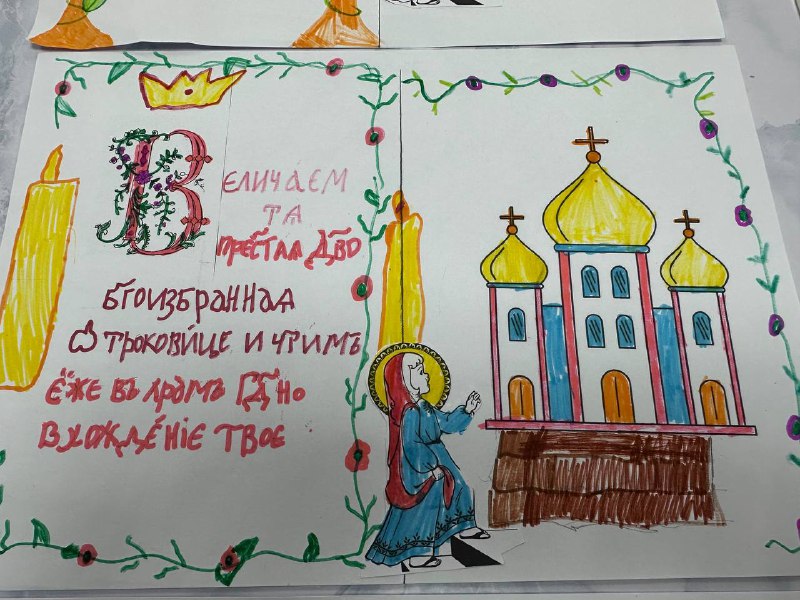 Величаем
тѧ
прес҃таѧ Дв҃о
бг҃оизбраннаѧ
Ѻтроковице и чтимъ
еже въ храмъ Гд҃но
вхождéніе твое